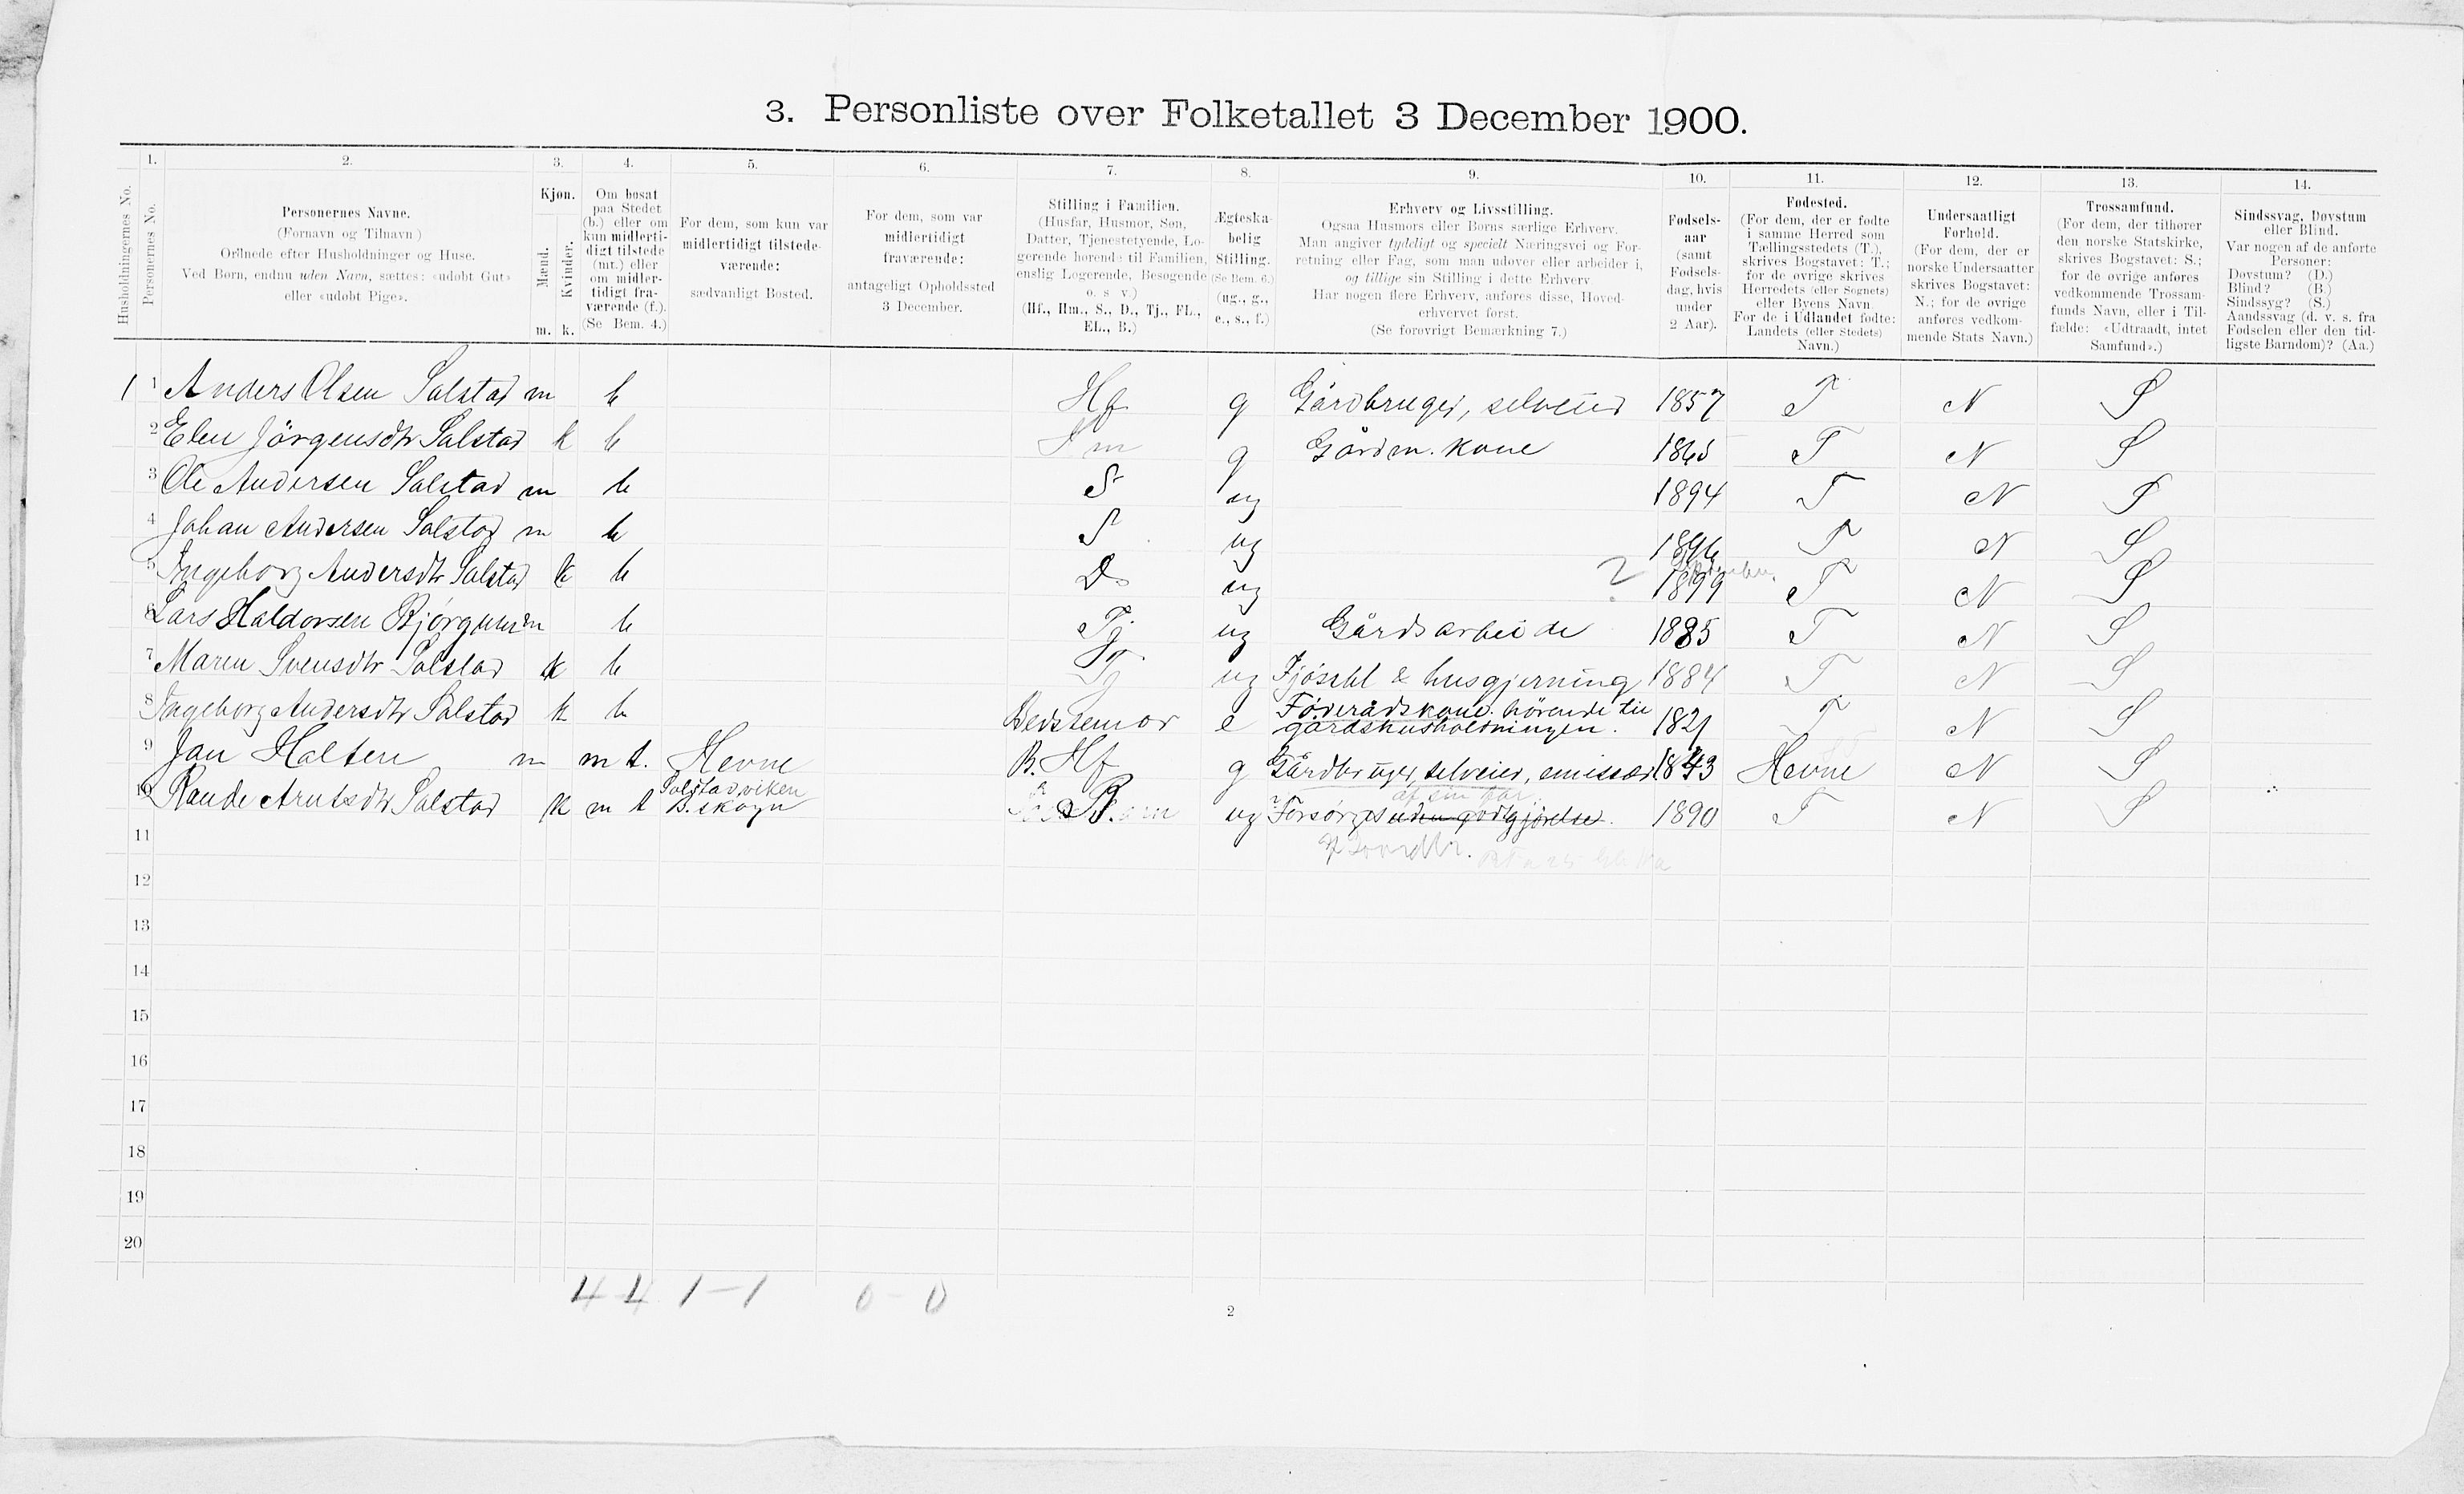 3. Personliste over Folketallet 3 December 1900.
1. 2. 3. 4. 5. 6. 7. 8. 9. 10. 11. 12. 13. 14.
Husholdningernes No.
Personernes No.
Personernes Navne.
(Fornavn og Tilnavn.)
Ordnede efter Husholdninger og Huse.
Ved Børn, endnu uden Navn, sættes: «udøbt Gut»
eller «udøbt Pige».
Kjøn.
Mænd.
Kvinder.
m. k.
Om bosat
paa Stedet
(b.) eller om
kun midlerti-
digt tilstede
(mt.) eller
om midler-
tidigt fra-
værende (f.).
(Se Bem. 4.)
For dem, som kun var
midlertidigt tilstede-
værende:
sædvanligt Bosted.
For dem, som var
midlertidigt
fraværende:
antageligt Opholdssted
3 December.
Stilling i Familien.
(Husfar, Husmor, Søn,
Datter, Tjenestetyende, Lo-
gerende hørende til Familien,
enslig Logerende, Besøgende
o. s. v.)
(Hf., Hm., S., D., Tj., FL.,
EL., B.)
Ægteska-
belig
Stilling.
(Se Bem. 6.)
(ug., g.,
e., s., f.)
Erhverv og Livsstilling.
Ogsaa Husmors eller Børns særlige Erhverv.
Man angiver tydeligt og specielt Næringsvei og For-
retning eller Fag, som man udøver eller arbeider i,
og tillige sin Stilling i dette Erhverv
Har nogen flere Erhverv, anføres disse, Hoved-
erhvervet først.
(Se forøvrigt Bemærkning 7.)
Fødsels-
aar
(samt
Fødsels-
dag, hvis
under
2 Aar).
Fødested.
(For dem, der er fødte
i samme Herred som
Tællingsstedets (T.),
skrives Bogstavet: T.;
for de øvrige skrives
Herredets (eller Sognets)
eller Byens Navn.
For de i Udlandet fødte:
Landets (eller Stedets)
Navn.)
Undersaatligt
Forhold.
(For dem, der er
norske Undersaatter
skrives Bogstavet:
N.; for de øvrige
anføres vedkom-
mende Stats Navn.)
Trossamfund.
(For dem, der tilhører
den norske Statskirke,
skrives Bogstavet: S.;
for de øvrige anføres
vedkommende Trossam-
funds Navn, eller i Til-
fælde: «Udtraadt, intet
Samfund».)
Sindssvag, Døvstum
eller Blind.
Var nogen af de anførte
Personer:
Døvstum? (D.)
Blind? (B.)
Sindssyg? (S.)
Aandssvag (d. v. s. fra
Fødselen eller den tid-
ligste Barndom)? (Aa.)
1 1 Anders Olsen Salstad m b Hf g Gårdbruger, selveier 1857 T N S
2 Elen Jörgensdtr Salstad k b Hm g Gårdm. kone 1865 T N S
3 Ole Andersen Salstad m b S ug 1894 T N S
4 Johan Andersen Salstad m b S ug 1896 T N S
5 Ingeborg Andersdtr Salstad k b D ug ? 1899 T N S
6 Lars Haldorsen m b Tj ug Gårdsarbeide 1885 T N S
7 Maren Svensdtr Salstad k b Tj ug Fjösstel & husgjerning 1884 T N S
8 Ingeborg Andersdtr Salstad k b Bedstemor e Föderådskone. hörende til
gårdshusholdningen. 1821 T N S
9 Jan Halten m m t. Hevne B. Hf g Gårdbruger, selveier, emissær 1843 Hevne N S
10 Arntsdtr Salstad k m t Salstadviken
B. skogn B. ug Forsörges uden godtgjörelse.
af sin far 1890 T N S
11
12
13
14
15
16
17
18
19
20
4-4 1-1 0-0
2